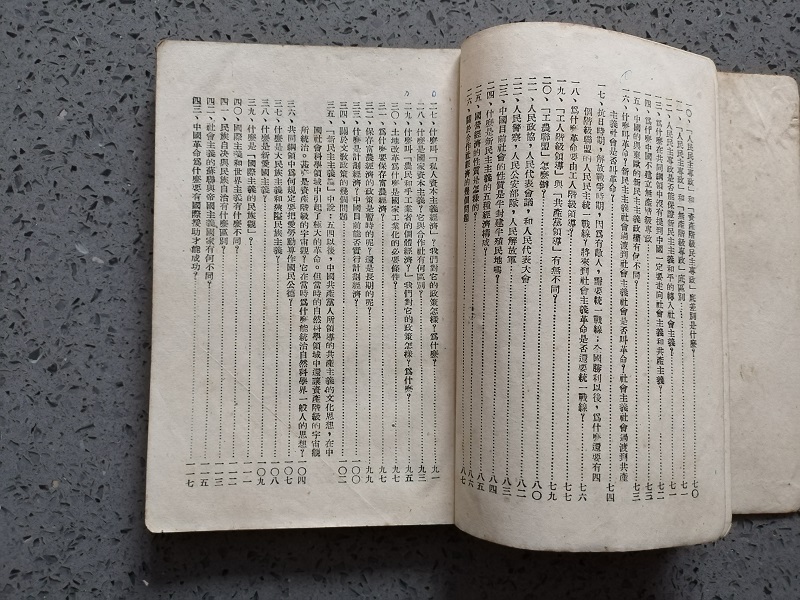 一〇、「人民民主專政」和「資產階級民主專政」底差別是什麼？……七〇
一一、「人民民主專政」和「無產階級專政」底區別……七一
一三、爲什麼共同綱領沒有提到中國一定要走向社會主義和共產主義？……七二
一四、爲什麼中國不建立無產階級專政……七三
一五、中國的與東歐的新民主主義政權有何不同？……七三
一六、什麼叫革命？新民主主義社會過渡到社會主義社會是否叫革命？社會主義社會過渡到共產
主義社會是否叫革命？……七四
一七、抗日時期，解放戰爭時期，因爲有敵人，需要統一戰線；全國勝利以後，爲什麼還要有四
個階級聯盟的人民民主統一戰線？將來到社會主義革命是否還要統一戰線？……七六
一八、爲什麼革命要由工人階級領導？……七七
一九、「工人階級領導」與「共產黨領導」有無不同？……七九
二〇、「工農聯盟」怎麼辦？……八〇
二一、人民政協，人民代表會議，和人民代表大會……八二
二二、人民警察，人民公安部隊，人民解放軍……八三
二三、中國目前社會的性質是半封建半殖民地嗎？……八四
二四、什麼是新民主主義的五種經濟構成？……八五
二五、國營經濟的性質是怎樣的？……八六
二六、關於合作社經濟的幾個問題……八七
二七、什麼叫「私人資本主義經濟」？我們對它的政策怎樣？爲什麼？……九一
二八、什麼是國家資本主義？它與合作社有何區別？……九三
二九、什麼叫「農民和手工業者的個體經濟」？我們對它的政策怎樣？爲什麼？……九五
三〇、土地改革爲什麼是國家工業化的必要條件？……九七
三一、爲什麼要保存富農經濟？……九七
三二、保存富農經濟的政策是暫時的呢？還是長期的呢？……九九
三三、什麼是計劃經濟？中國目前能否實行計劃經濟？……九九
三四、關於文教政策的幾個問題……一〇二
三五、「新民主主義論」中說：五四以後，中國共產黨人所領導的共產主義的文化思想，在中
國社會科學領域中引起了極大的革命。但當時的自然科學領域中還讓資產階級的宇宙觀
所統治。甚麼是資產階級的宇宙觀？它在當時爲什麼能統治自然科學界一般人的思想？……一〇四
三六、共同綱領中爲何規定要把愛勞動專作國民公德？……一〇七
三七、什麼是大民族主義和狹隘民族主義？……一〇八
三八、什麼是新愛國主義？……一〇九
三九、什麼是「國際主義的民族觀」？……一一〇
四〇、國際主義和世界主義有什麼不同？……一一一
四一、民族自決和民族自治有什麼區別？……一一二
四二、社會主義的蘇聯與帝國主義國家有何不同？……一一五
四三、中國革命爲什麼要有國際援助才能成功？……一一七